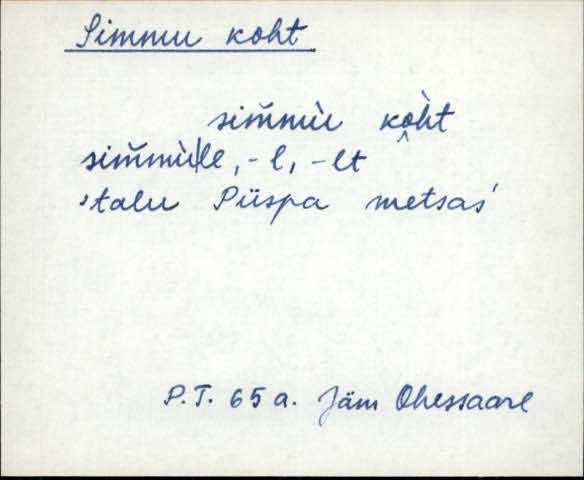 Simmu koht
sim̆mù kòht
sim̆mùlle, -l, -lt
'talu Püspa metsas'
P.T. 65 a. Jäm Ohessaare